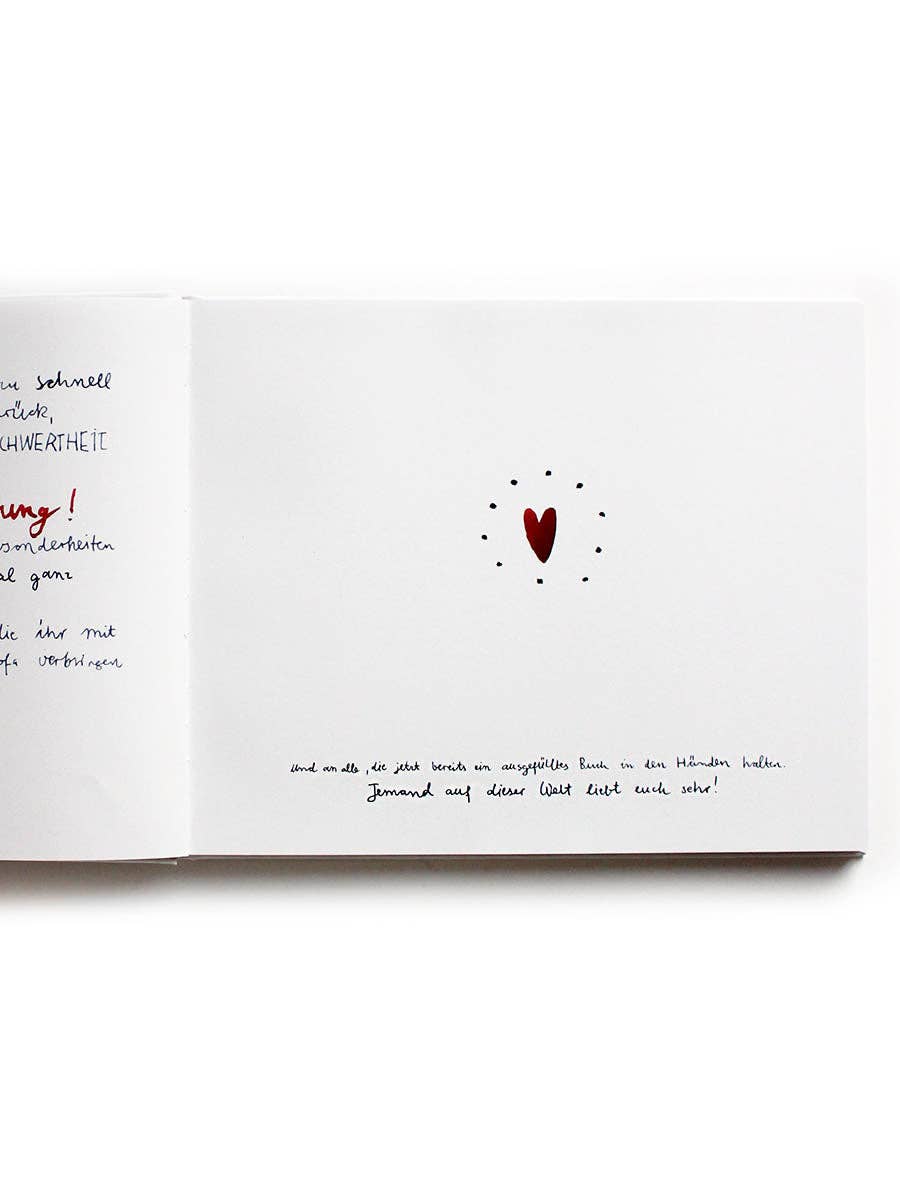 zu schnell
rück,
CHWERTHEIT
ung!
sonderheiten
al ganz
die ihr mit
ofa verbringen
und an alle, die jetzt bereits ein ausgefülltes Buch in den Händen halten.
Jemand auf dieser Welt liebt euch sehr!